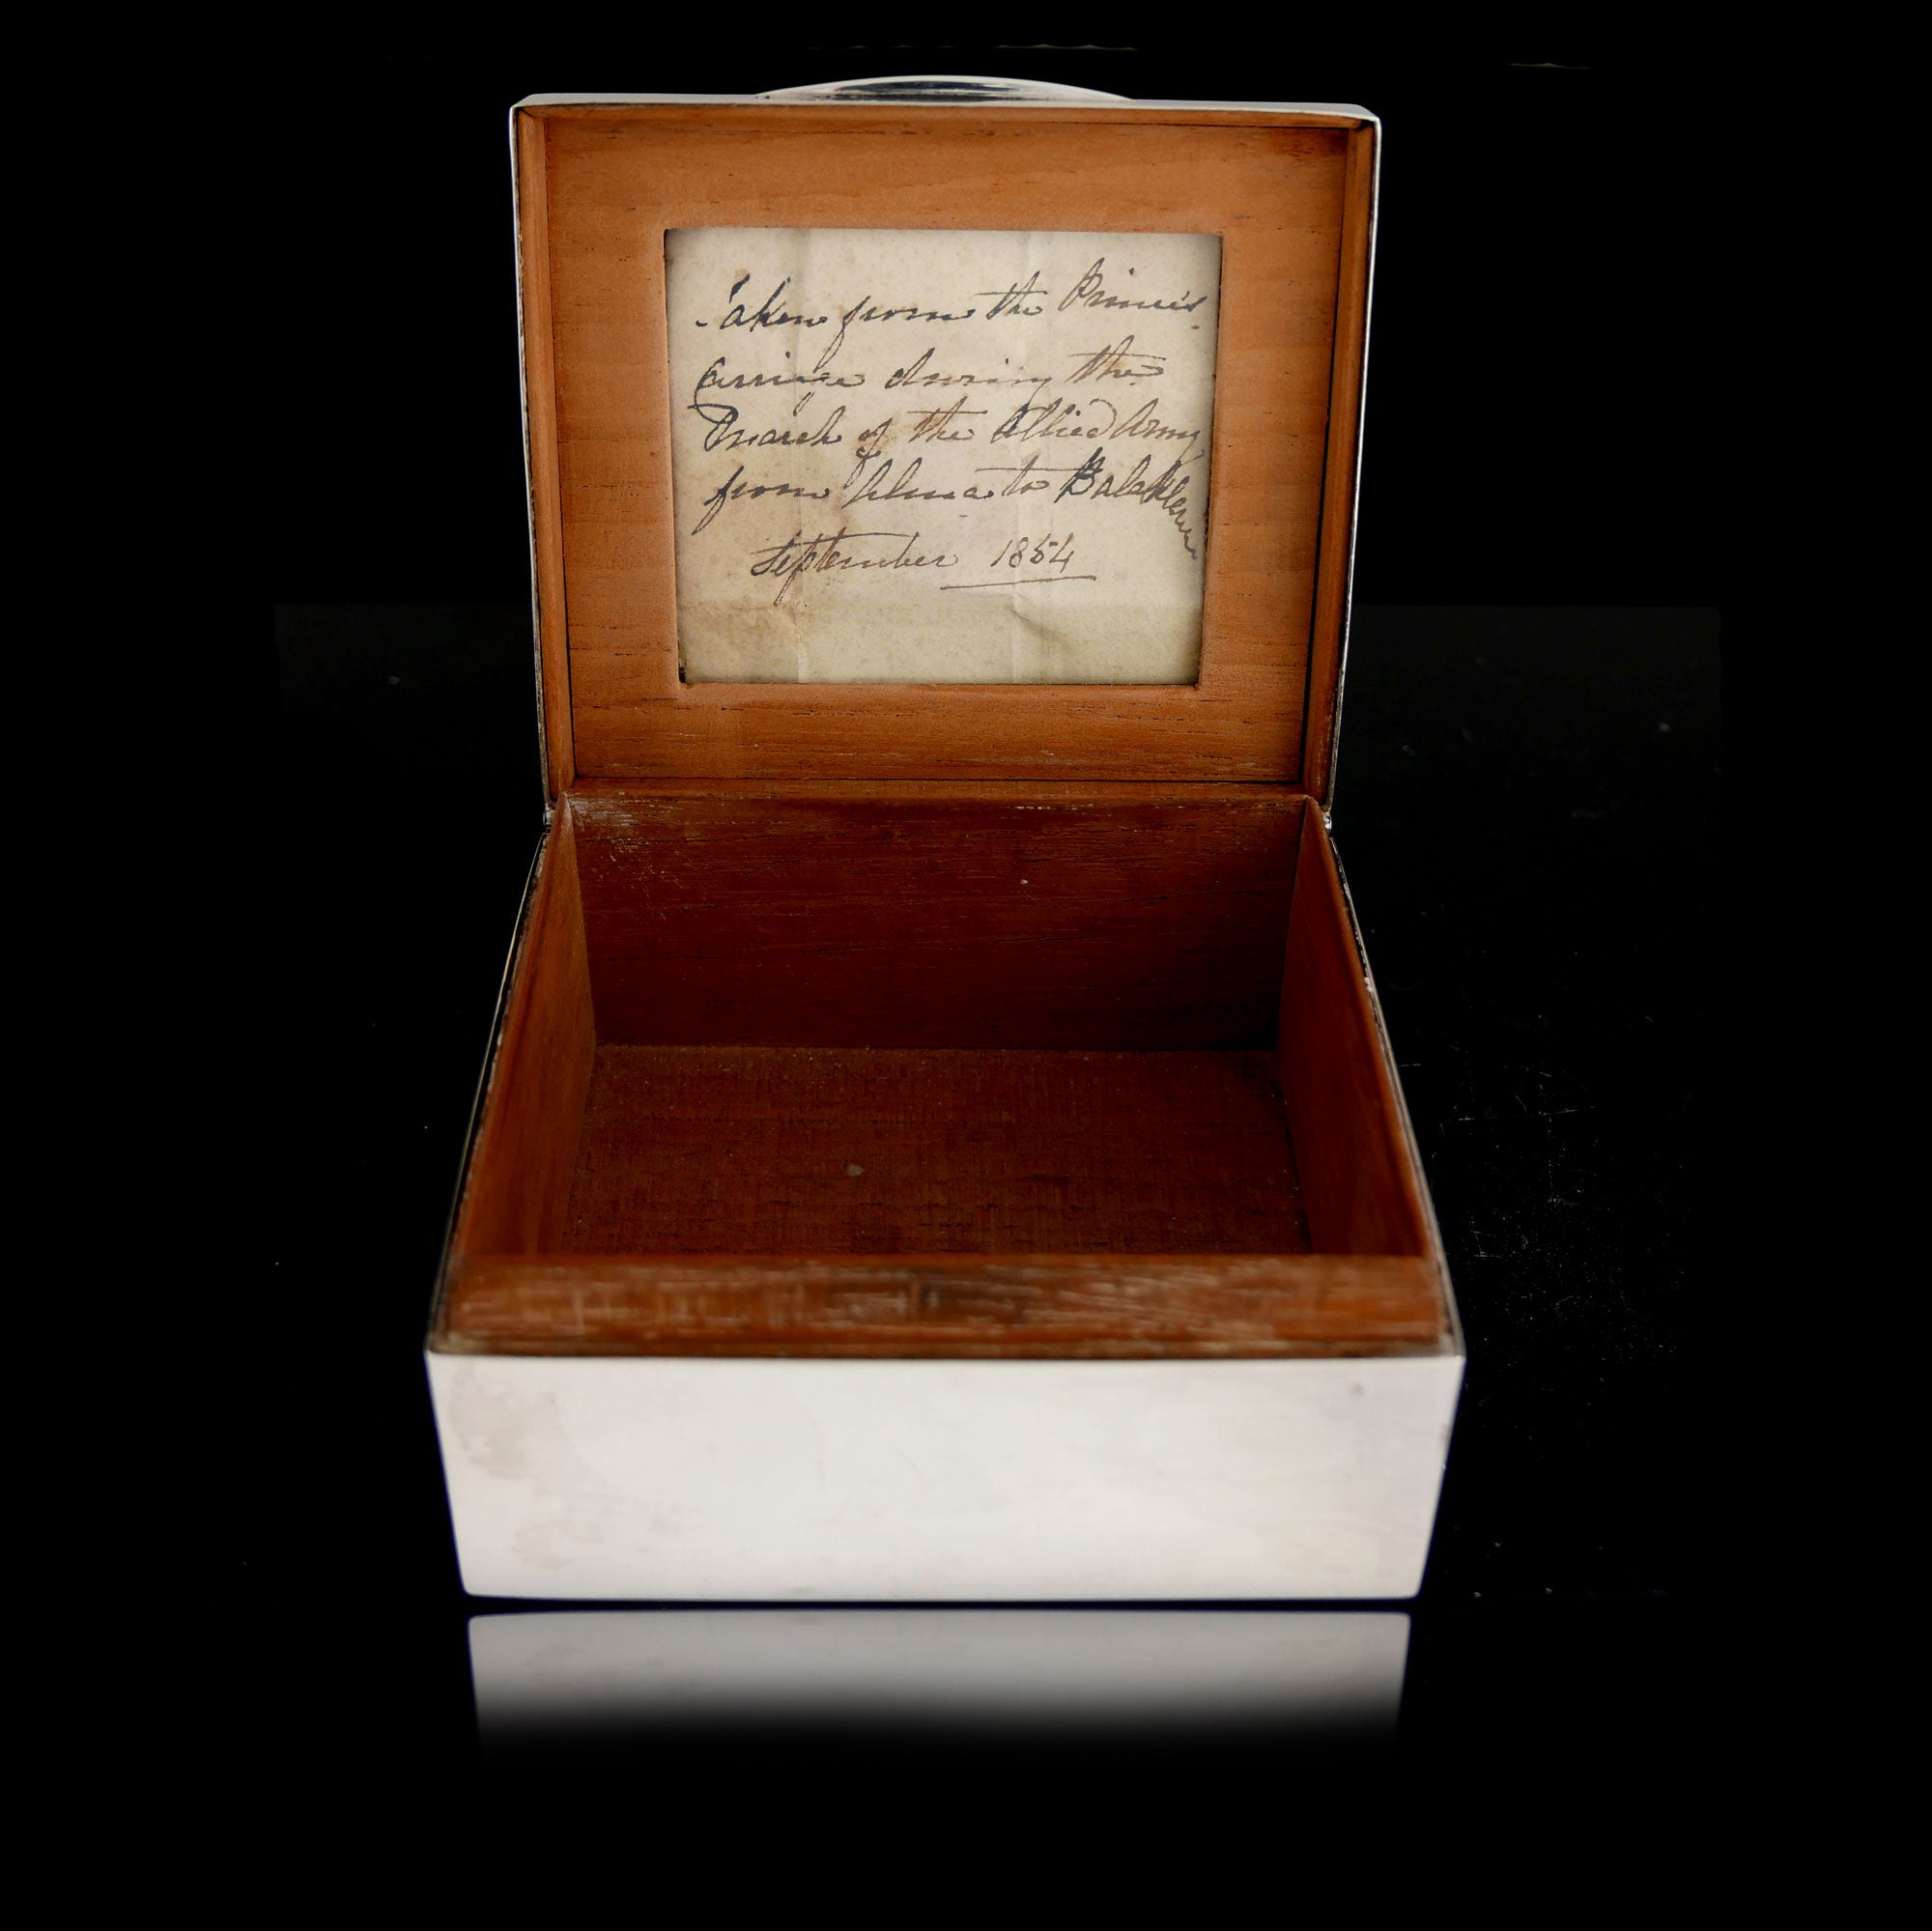 Taken from the Prince's
Carriage during the
March of the Allied Army
from Alma to Balaklava
September 1854